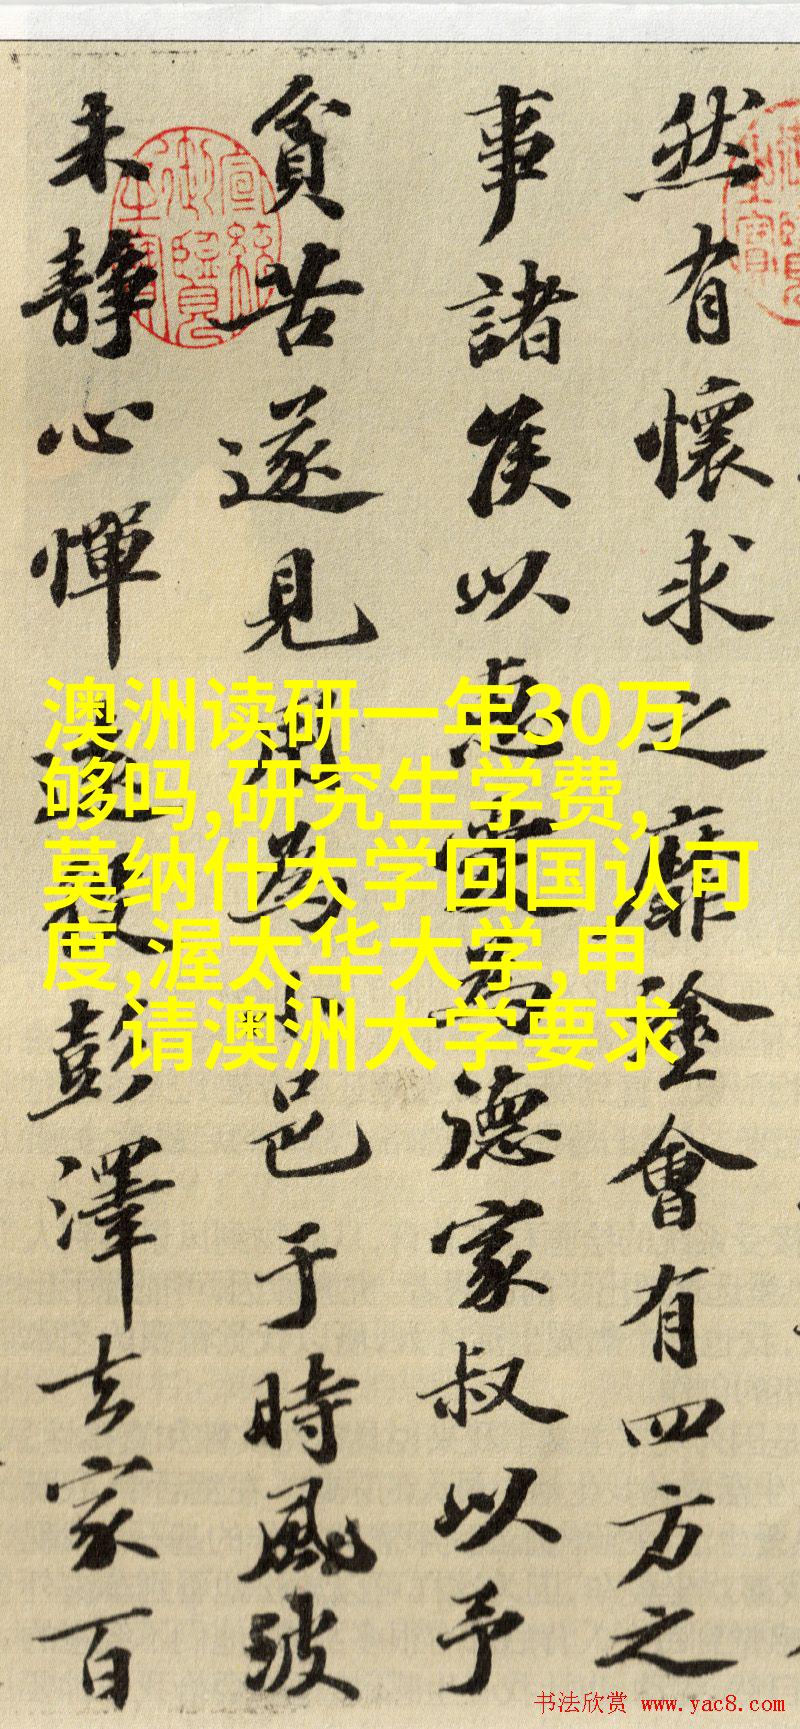 然有懷求之靡塗會有四方之
事諸侯以惠愛為德家叔以予
貧苦遂見用為小邑于時風波
未静心憚遠役彭澤去家百
宣統御覽之寶
澳洲读研一年30万
够吗,研究生学费,
莫纳什大学回国认可
度,渥太华大学,申
请澳洲大学要求
书法欣赏 www.yac8.com